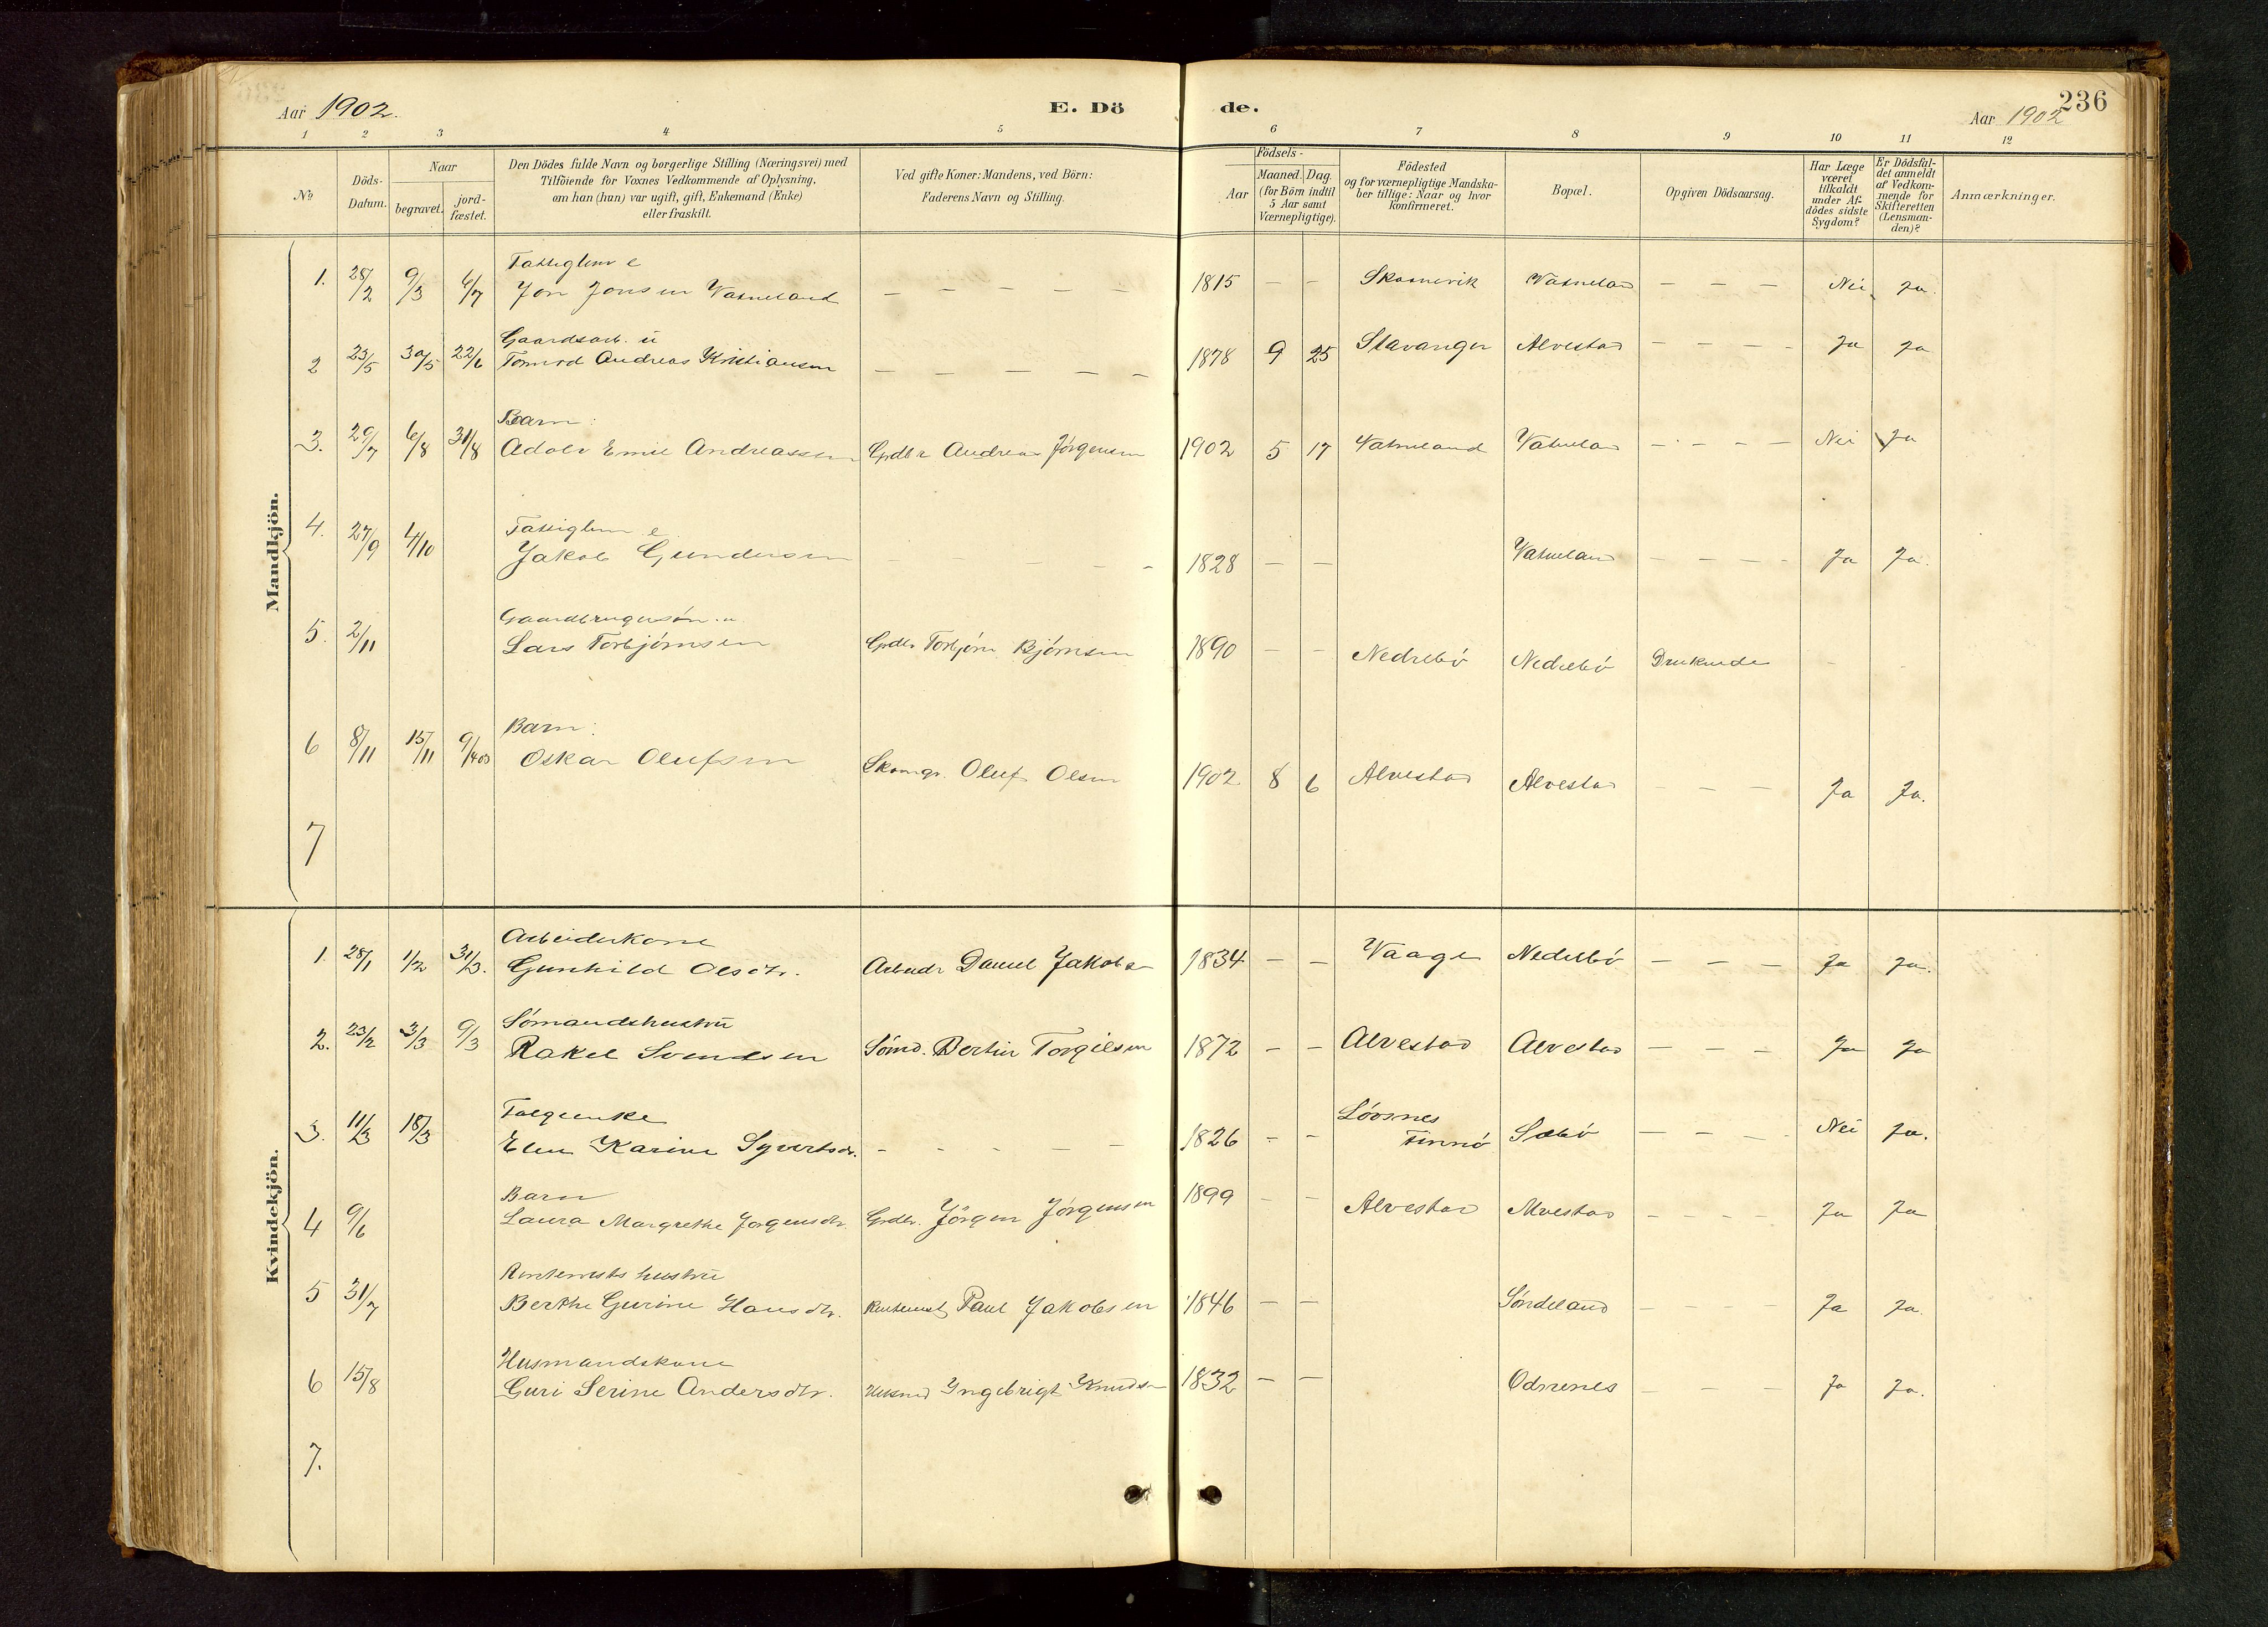 Aar 1902.
E. Dö
de.
Aar 1902
236
1 2 3 4 5 6 7 8 9 10 11 12
No.
Döds-
Datum.
Naar
begravet.
jord-
fæstet.
Den Dödes fulde Navn og borgerlige Stilling (Næringsvei) med
Tilföiende for Voxnes Vedkommende af Oplysning,
om han (hun) var ugift, gift, Enkemand (Enke)
eller fraskilt.
Ved gifte Koner: Mandens, ved Börn:
Faderens Navn og Stilling.
Födsels-
Aar
Maaned. Dag.
(for Börn indtil
5 Aar samt
Værnepligtige).
Födested
og for værnepligtige Mandska-
ber tillige: Naar og hvor
konfirmeret.
Bopæl.
Opgiven Dödsaarsag.
Har Læge
været
tilkaldt
under Af-
dödes sidste
Sygdom?
Er Dödsfal-
det anmeldt
af Vedkom-
mende for
Skifteretten
(Lensman-
den)?
Anmærkninger.
Mandkjön.
Fattiglem e
1. 28/2 9/3 6/7 Jon Jonsen Vatneland — — — — — 1815 — — Vatneland — — — Nei Ja.
Gaardsarb. ü
2 23/5 30/5 22/6 Andreas Kristiansen — — — — — 1878 9 25 Stavanger Alvestad — — — — Ja Ja
Barn:
3. 29/7 6/8 31/8 Adolv Emil Andreassen Grdbr Andreas Jörgensen 1902 5 17 Vatneland Vatneland — — — — Nei Ja
Fattiglem e
4. 27/9 4/10 Jakob Gundersen — — — — 1828 — — Vatneland — — — — Ja Ja.
Gaardbrugersön. u
5. 2/11 Lars Torbjörnsen Grdbr Torbjörn Björnsen 1890 — — Nedrebö Nedrebö Druknede - -
Barn:
6 8/11 15/11 9/4 03 Oskar Olufsen Skomgr. Oluf Olsen 1902 8 6 Alvestad Alvestad — — — Ja Ja.
7
Kvindekjön.
Arbeiderkone
1. 28/1 1/2 31/3. Gunhild Olsdtr. Arbeidr Daniel Jakobsen 1834 — — Vaage Nedrebö — — — Ja Ja.
Sömandshustrü
2. 23/2 3/3 9/3 Rakel Svendsen Sömd. Bertin Torgilsen 1872 — — Alvestad Alvestad — — — Ja Ja
Lövsnes
3. 11/3 18/3 Elen Karine Syvertsdr. — — — — — 1826 — — Finnö Sæbö — — — — Nei Ja.
Barn
4 9/6 Laura Margrethe Jörgensdtr. Grdbr. Jörgen Jörgensen 1899 — — Alvestad Alvestad — — — — Ja Ja
hustrü
5 31/7 Berthe Gurine Hansdtr. Paul Jakobsen 1846 — — Söndeland — — — — Ja Ja.
Husmandskone
6 15/8 Guri Serine Andersdtr. Husmd Ingebrigt Knudsen 1832 — — Odnenes — — — Ja Ja.
7.